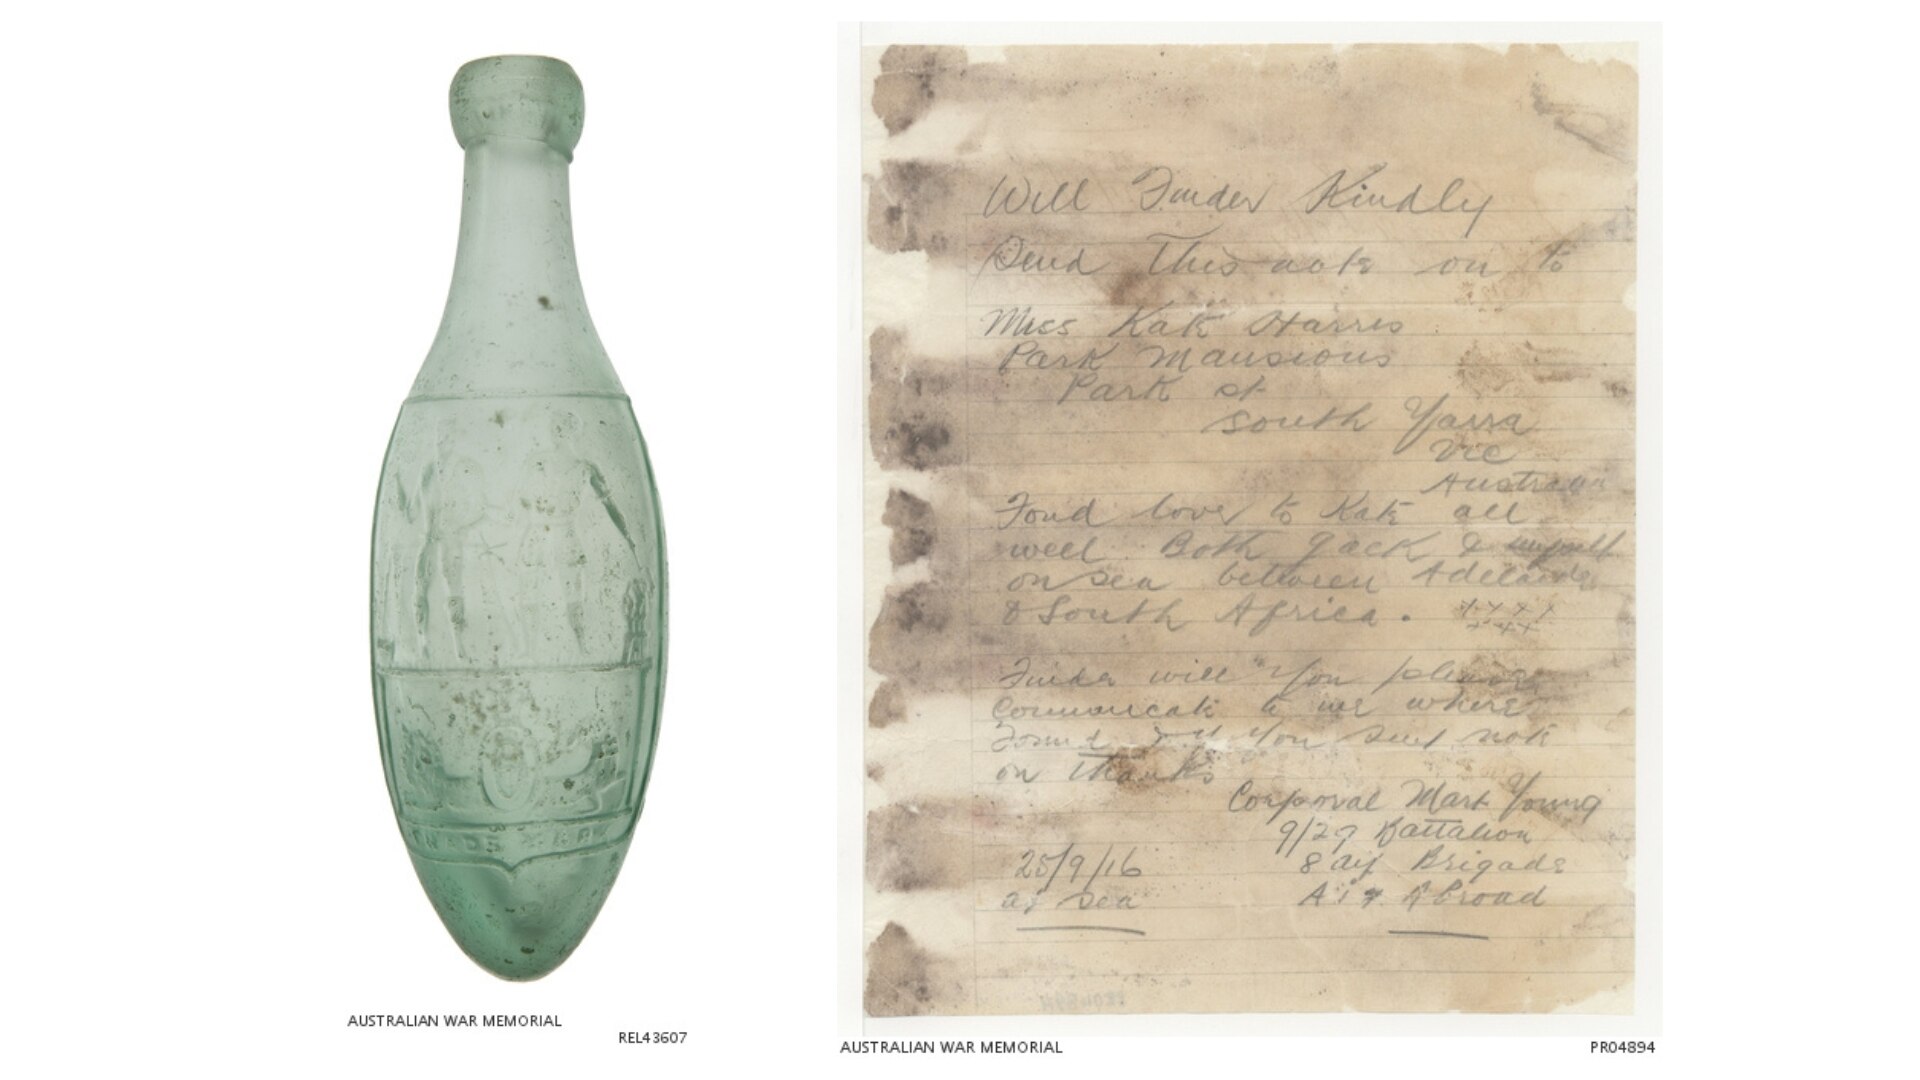 AUSTRALIAN WAR MEMORIAL
REL43607
Will Finder Kindly
Send This note on to
Miss Kate Harris
Park Mansions
Park st
South Yarra
Vic
Australia
Fond love to Kate all
well Both Jack & myself
on sea between Adelaide
& South Africa. xxxx
xxxx
Finder will you please
Communicate to me where
Found if you send note
on Thanks
Corporal Mark Young
9/29 Battalion
25/9/16 8 Brigade
at sea A.I.F. Abroad
AUSTRALIAN WAR MEMORIAL
PR04894